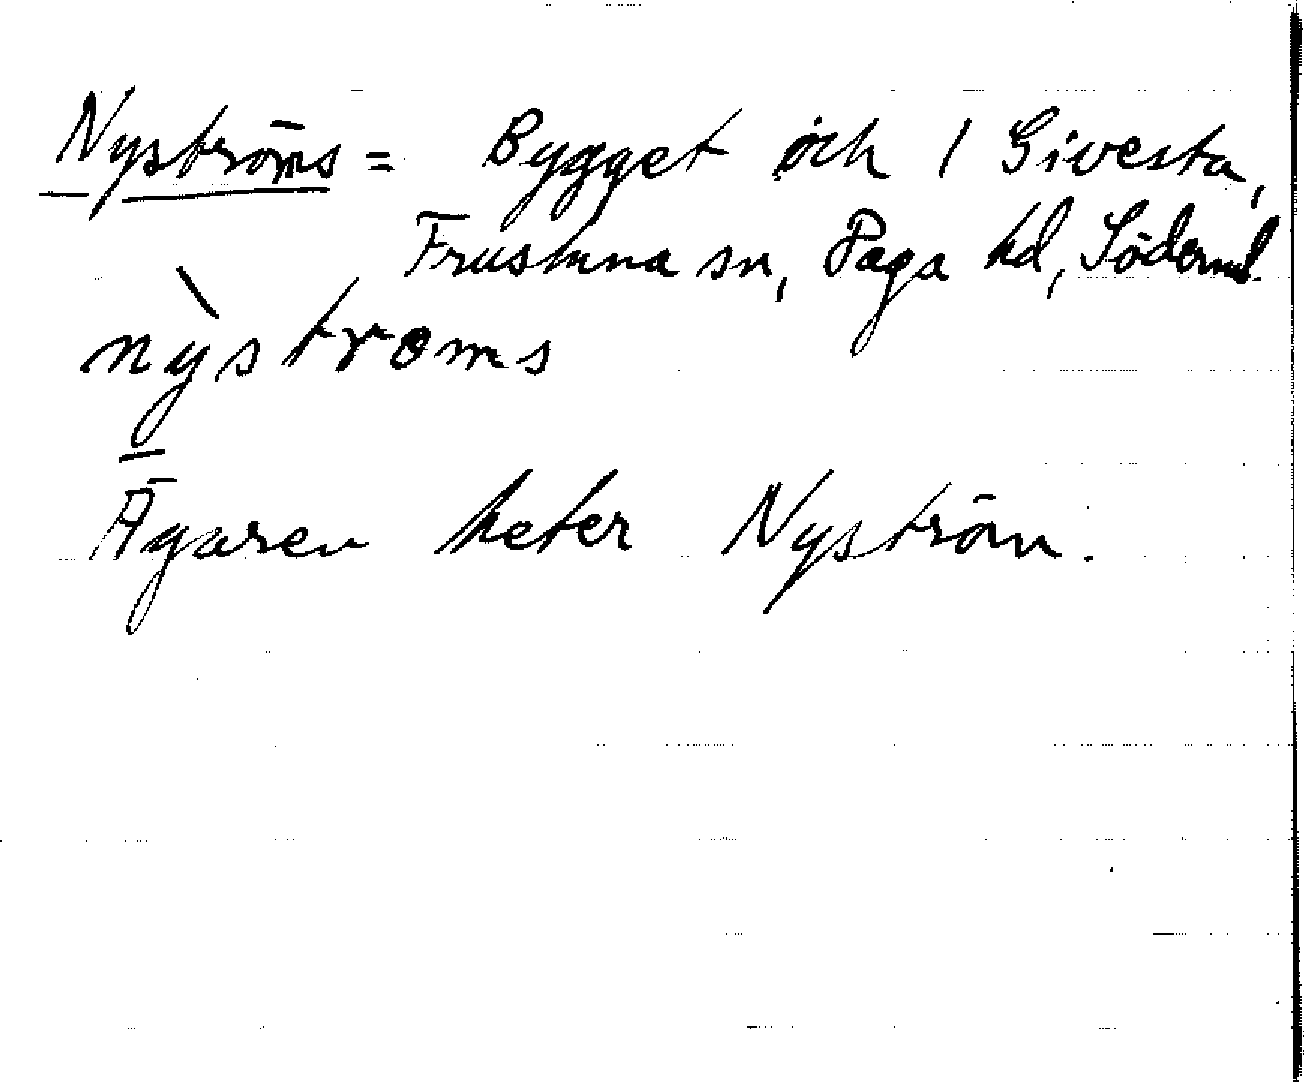 Nyströms = Bygget och 1 Sivesta,
Frustuna sn, Daga hd, Söderml.
nỳstroms
Ägaren heter Nyström.